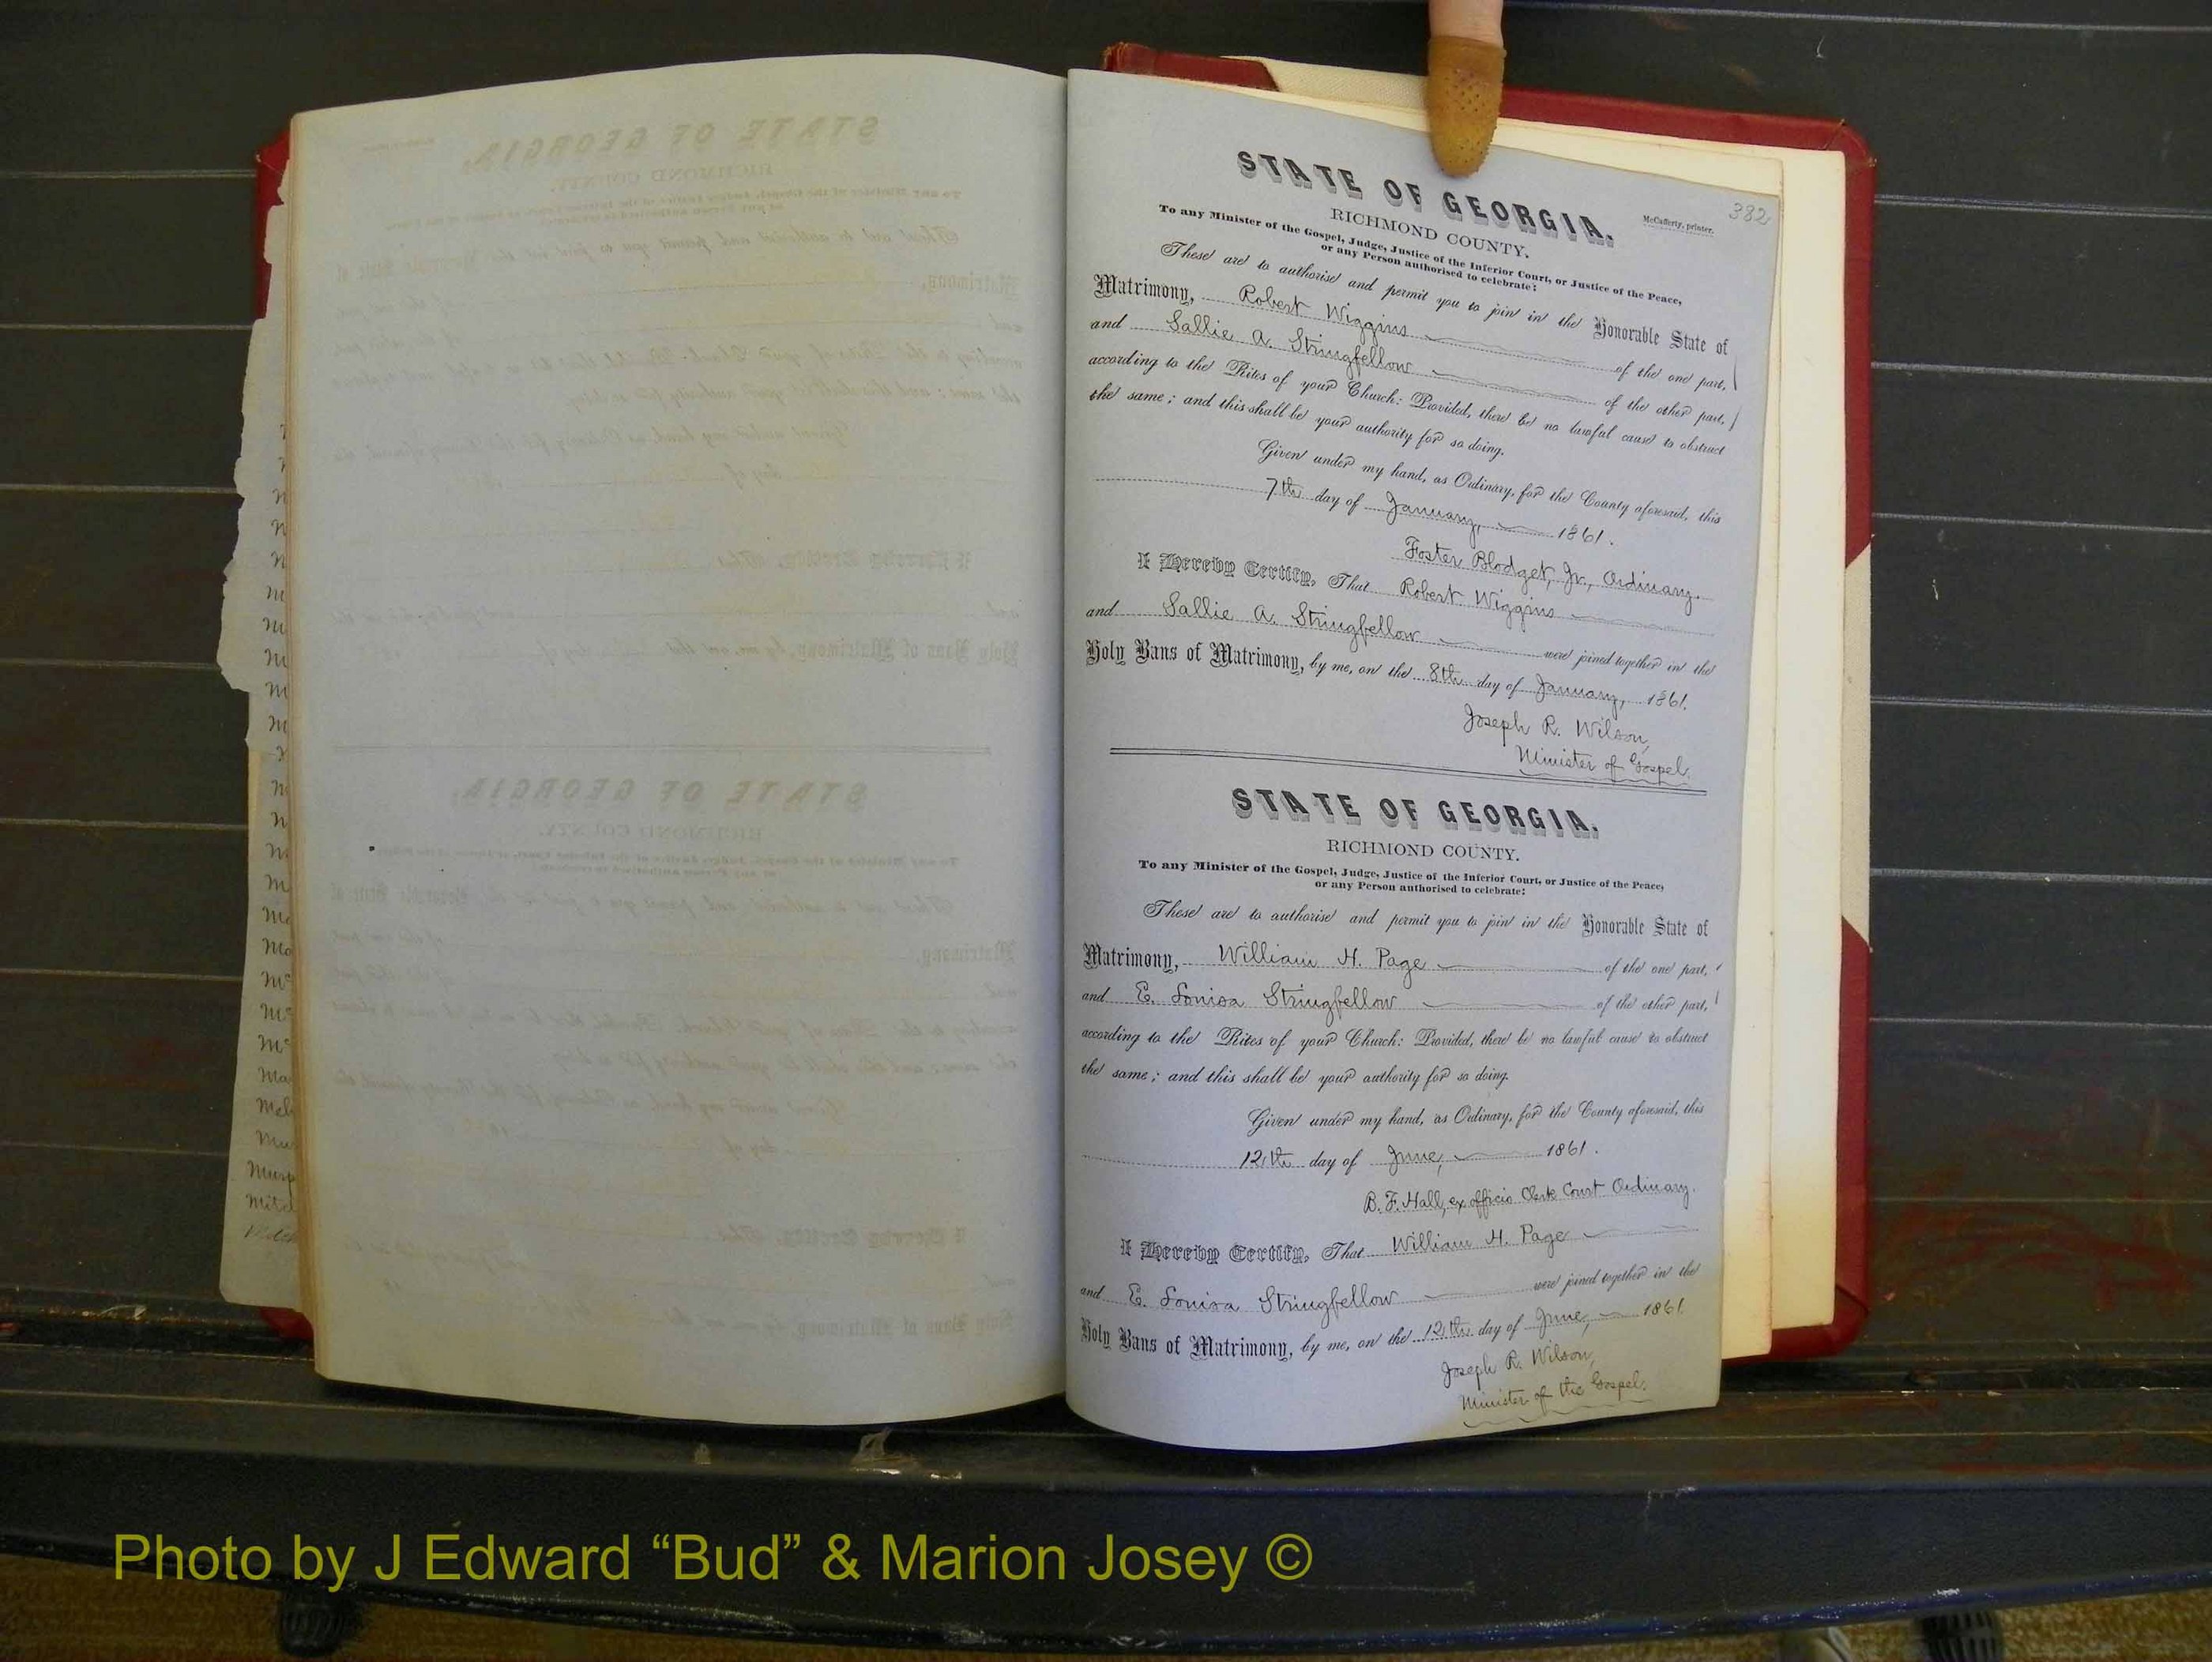 382
McCafferty, printer.
STATE OF GEORGIA.
RICHMOND COUNTY.
To any Minister of the Gospel, Judge, Justice of the Inferior Court, or Justice of the Peace,
or any Person authorised to celebrate:
These are to authorise and permit you to join in the Honorable State of
Matrimony, Robert Wiggins of the one part,
and Sallie A. Stringfellow of the other part,
according to the Rites of your Church: Provided, there be no lawful cause to obstruct
the same; and this shall be your authority for so doing.
Given under my hand, as Ordinary, for the County aforesaid, this
7th day of January, 1861.
Foster Blodget, Jr., Ordinary.
I Hereby Certify, That Robert Wiggins
and Sallie A. Stringfellow were joined together in the
Holy Bans of Matrimony, by me, on the 8th day of January, 1861.
Joseph R. Wilson,
Minister of Gospel.
STATE OF GEORGIA.
RICHMOND COUNTY.
To any Minister of the Gospel, Judge, Justice of the Inferior Court, or Justice of the Peace,
or any Person authorised to celebrate:
These are to authorise and permit you to join in the Honorable State of
Matrimony, William H. Page of the one part,
and E. Louisa Stringfellow of the other part,
according to the Rites of your Church: Provided, there be no lawful cause to obstruct
the same; and this shall be your authority for so doing.
Given under my hand, as Ordinary, for the County aforesaid, this
12th day of June, 1861.
B. F. Hall, ex officio Clerk Court Ordinary.
I Hereby Certify, That William H. Page
and E. Louisa Stringfellow were joined together in the
Holy Bans of Matrimony, by me, on the 12th day of June, 1861.
Joseph R. Wilson,
Minister of the Gospel.
Photo by J Edward “Bud” & Marion Josey ©